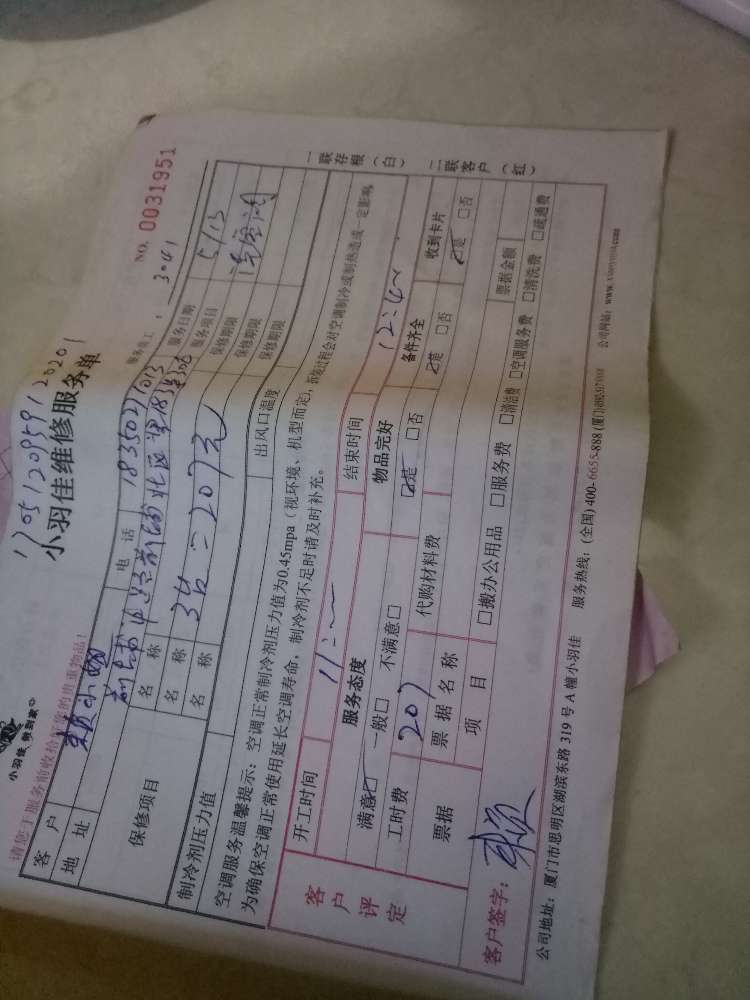 小羽佳，梦到家
请您于服务前收给好您的贵重物品！
17051209591 20201
小羽佳维修服务单
NO. 0031951
服务员工： 3041
客户 赖小姐 电话 18350271013 服务日期 5/13
地址 服务项目
保修项目 名称 保修期限
名称 3台 = 207元 保修期限
名称 保修期限
制冷剂压力值 出风口温度
空调服务温馨提示：空调正常制冷剂压力值为0.45mpa（视环境、机型而定），拆装过程会对空调制冷或制热造成一定影响
为确保空调正常使用延长空调寿命，制冷剂不足时请及时补充。
客户评定
开工时间 11:~ 结束时间 12:4~
服务态度 物品完好 备件齐全 收到卡片
满意☑ 一般□ 不满意□ ☑是 □否 ☑是 □否 ☑是 □否
工时费 207 代购材料费
票据 票据名称 票据金额
项目 □搬办公用品 □服务费 □清洁费 □空调服务费 □清洗费 □疏通费
客户签字： 赖
公司地址：厦门市思明区湖滨东路 319 号 A 幢小羽佳 服务热线：(全国) 400-6655-888 公司网站：www.xiaoyujia.com
一联存根（白）
二联客户（红）